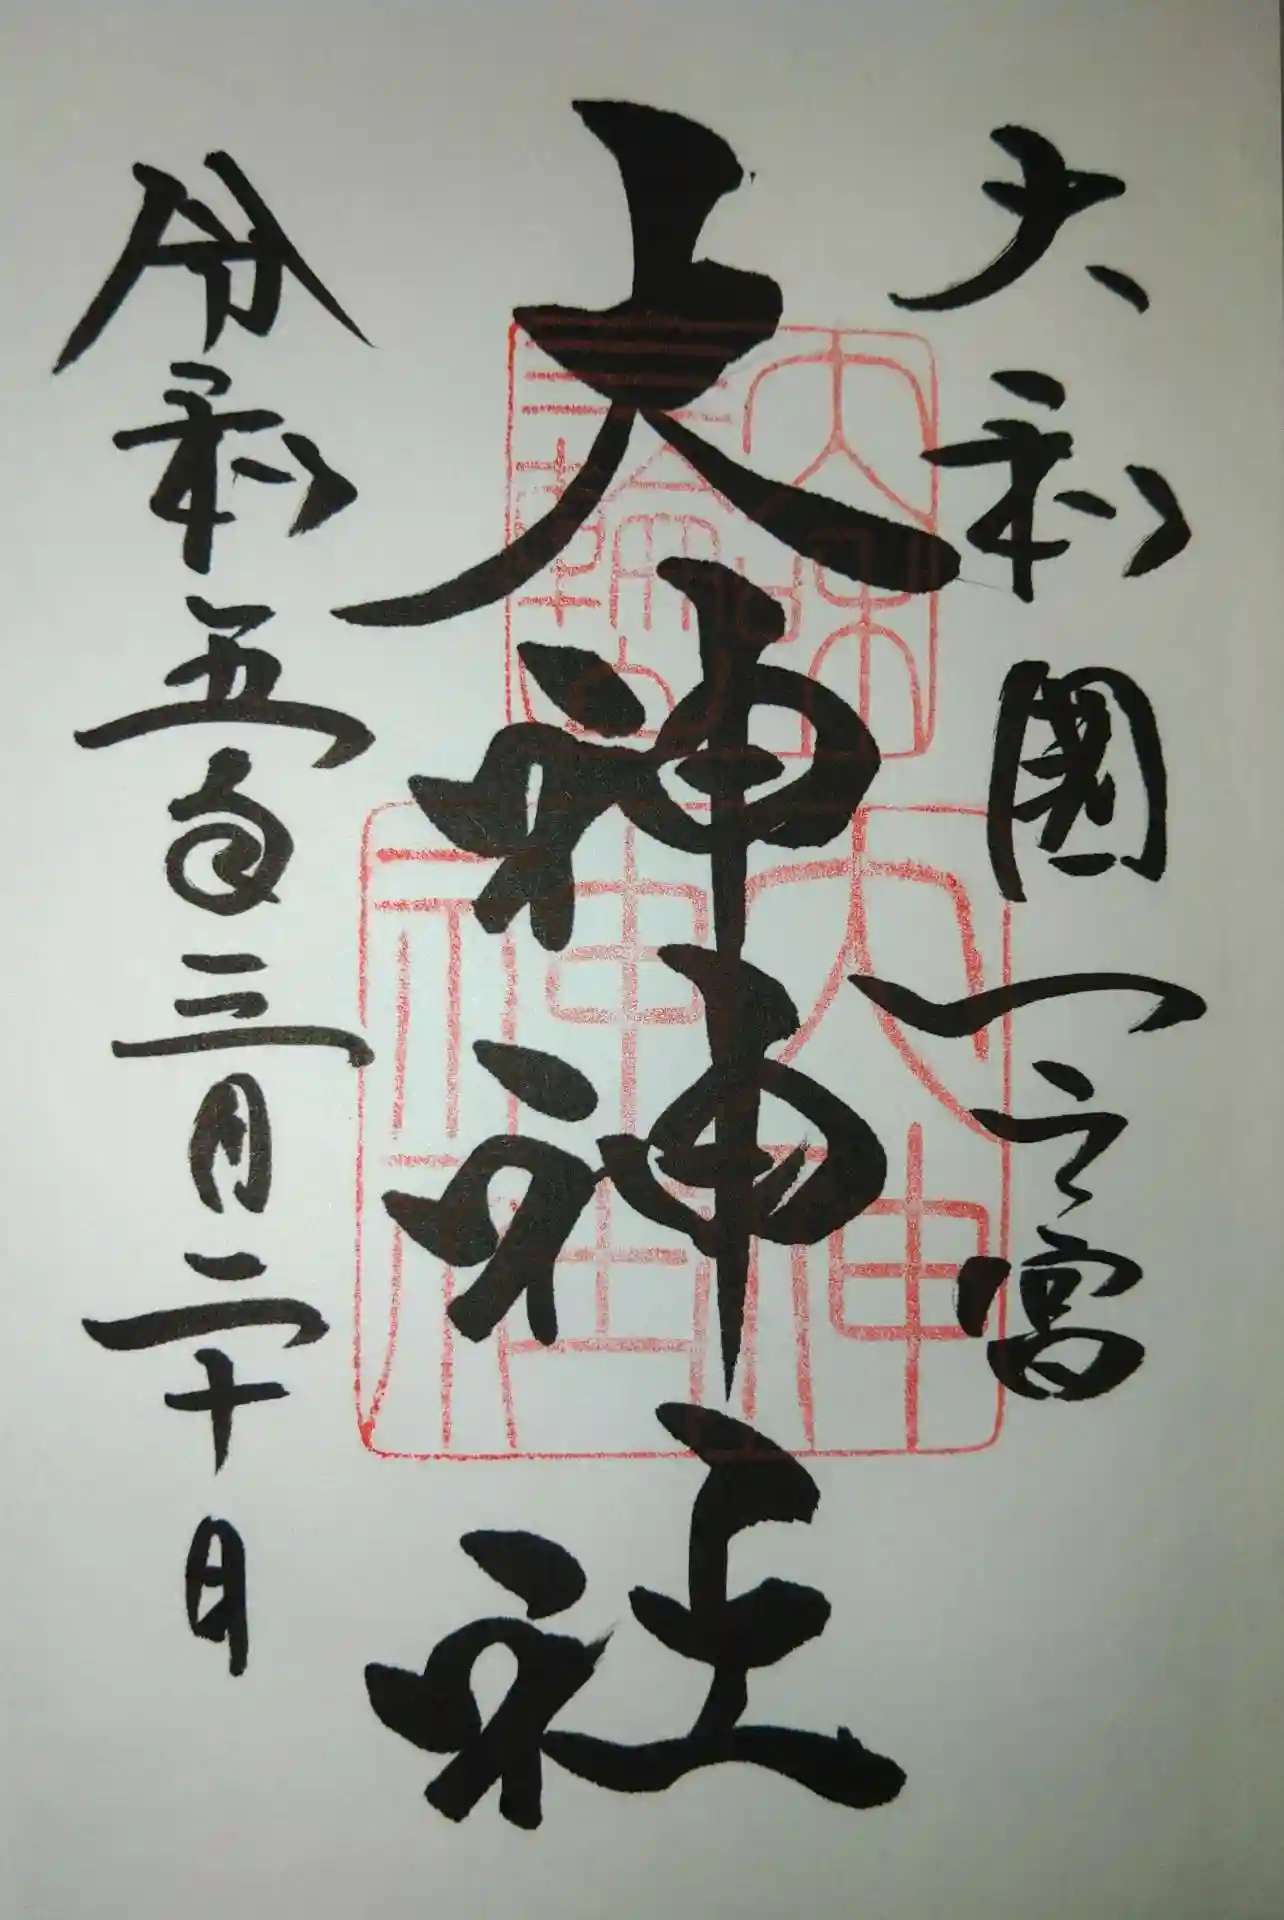 大和國一之宮
大神神社
令和五年三月二十日
大神
神社